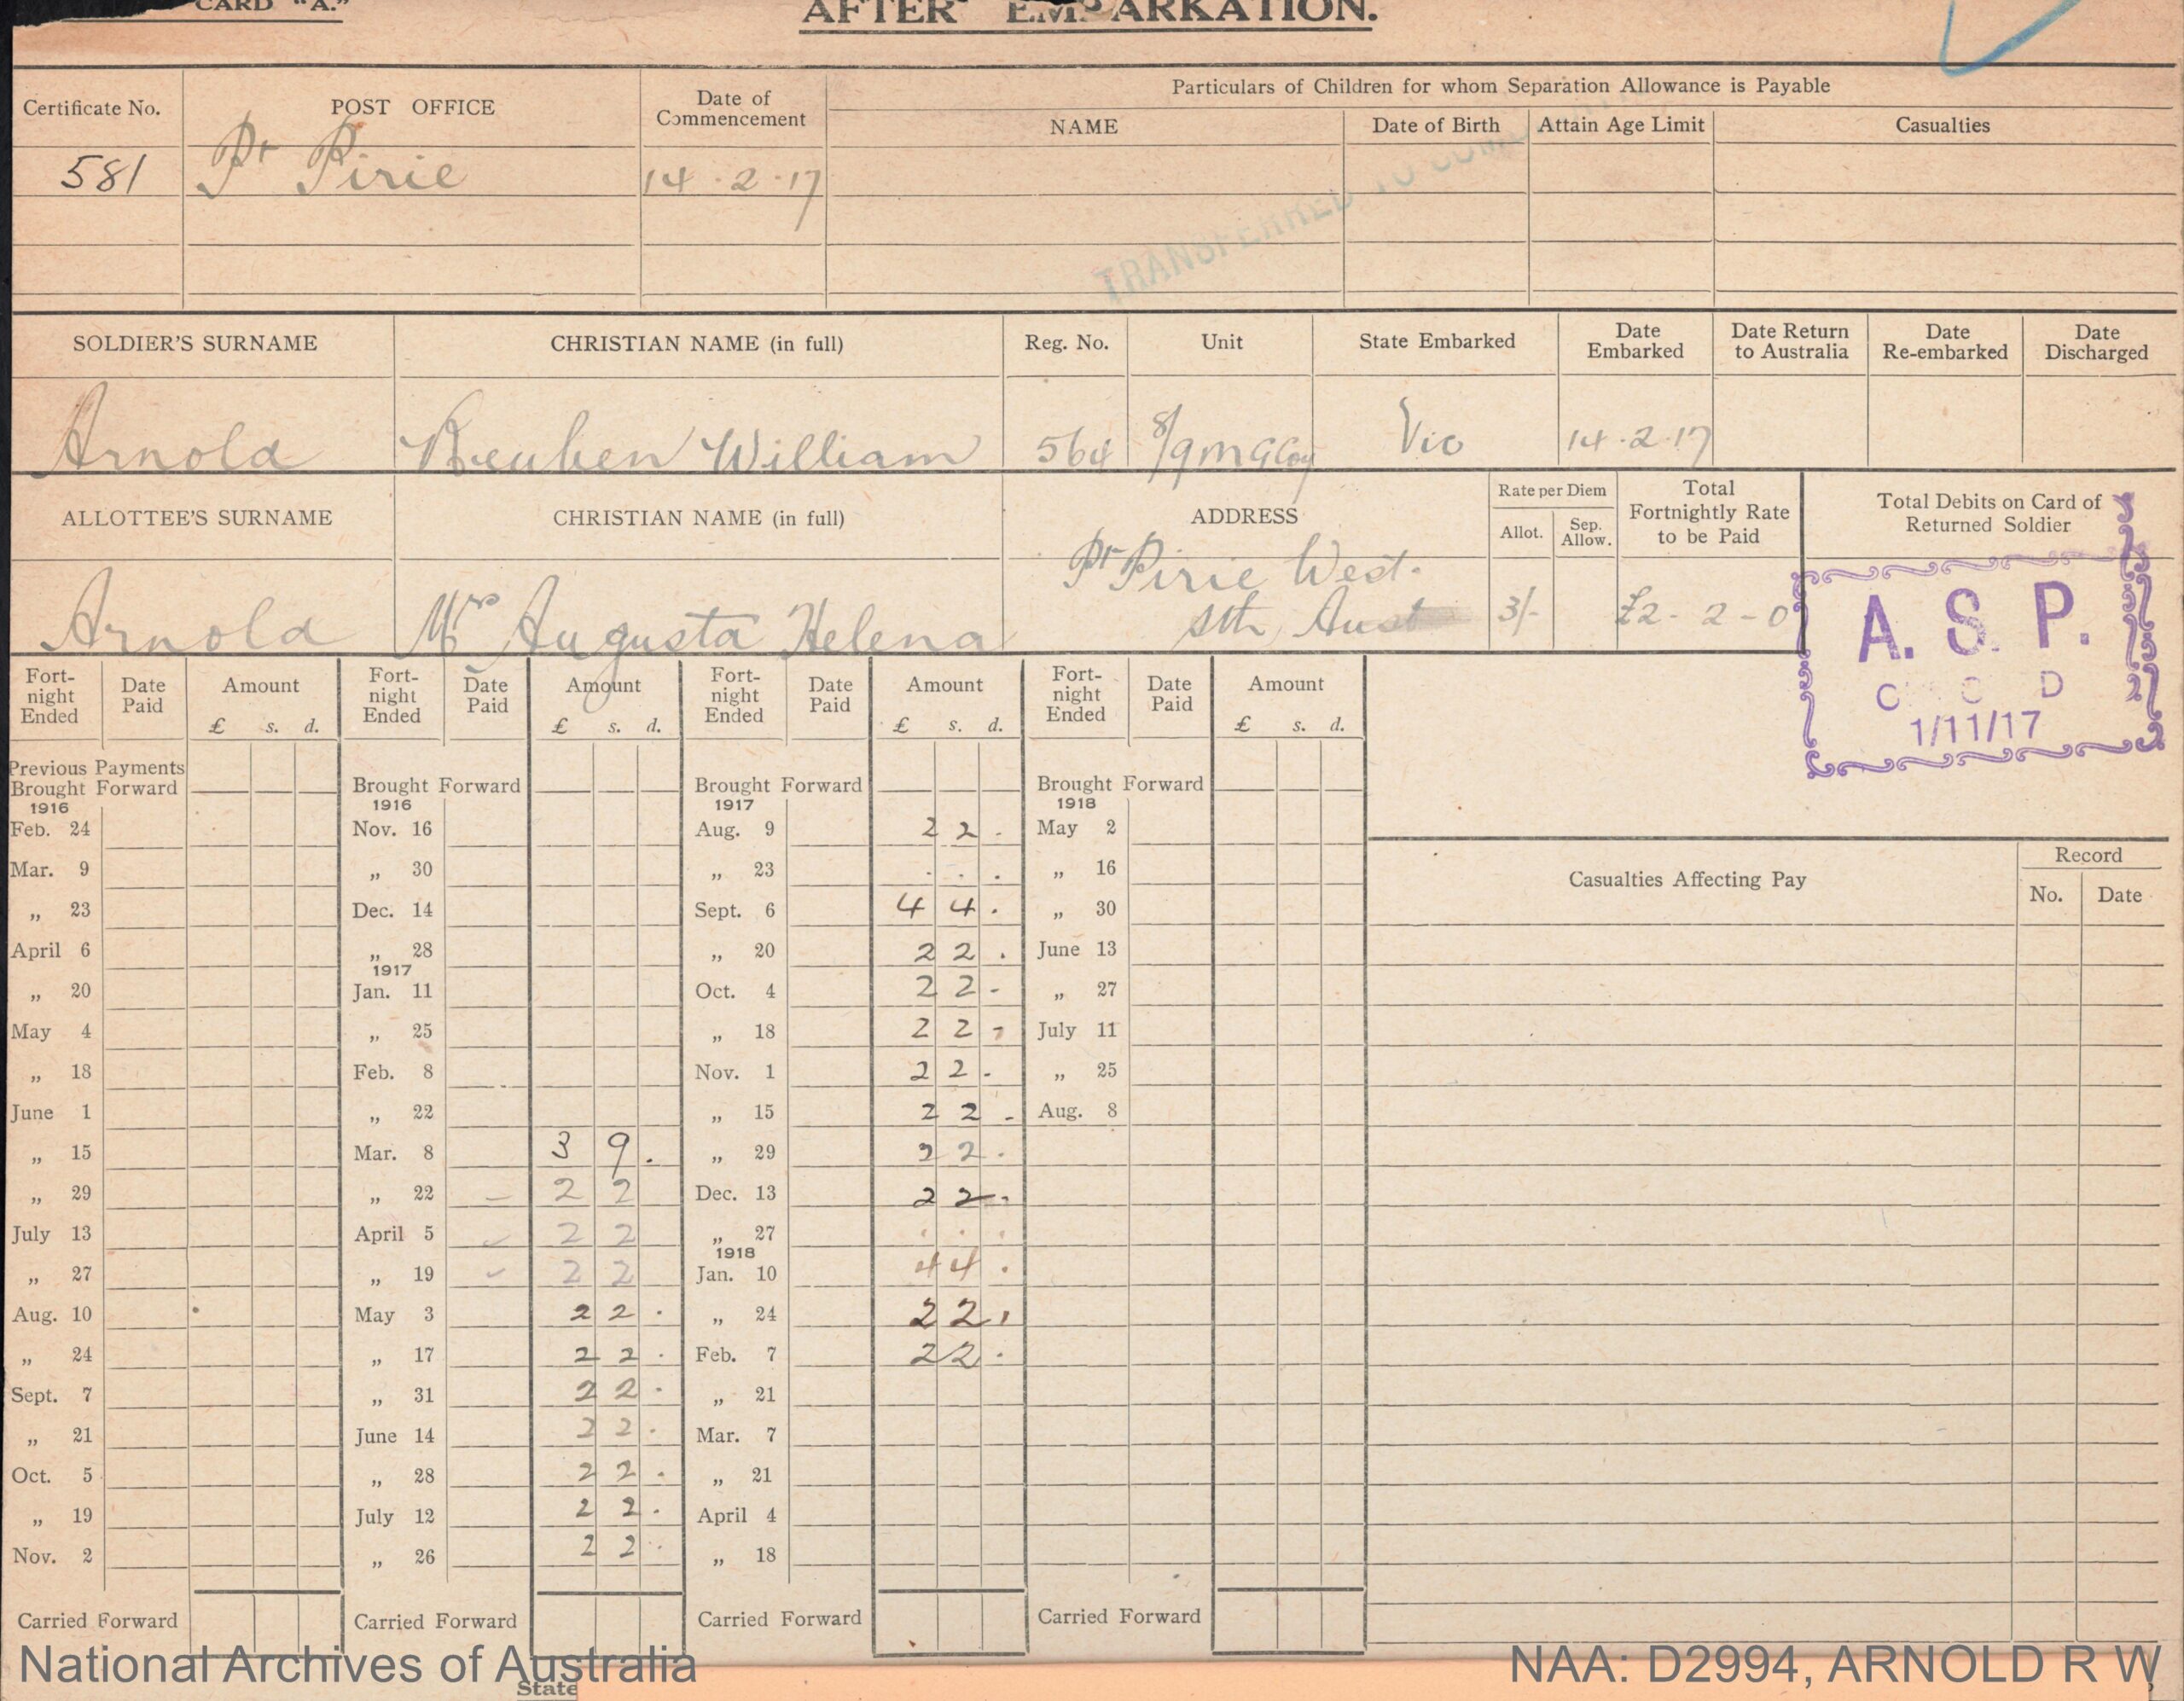 CARD "A."
AFTER EMBARKATION.
Certificate No. POST OFFICE Date of Commencement Particulars of Children for whom Separation Allowance is Payable
NAME Date of Birth Attain Age Limit Casualties
581 Pt Pirie 14.2.17
TRANSFERRED TO
SOLDIER'S SURNAME CHRISTIAN NAME (in full) Reg. No. Unit State Embarked Date Embarked Date Return to Australia Date Re-embarked Date Discharged
Arnold Reuben William 564 8/9 M G Coy Vic 14.2.17
ALLOTTEE'S SURNAME CHRISTIAN NAME (in full) ADDRESS Rate per Diem Allot. Sep. Allow. Total Fortnightly Rate to be Paid Total Debits on Card of Returned Soldier
Arnold Mrs Augusta Helena Pt Pirie West. Sth Aust 3/- £2-2-0
A. S. P.
1/11/17
Fort-night Ended Date Paid Amount £ s. d. Fort-night Ended Date Paid Amount £ s. d. Fort-night Ended Date Paid Amount £ s. d. Fort-night Ended Date Paid Amount £ s. d.
Previous Payments Brought Forward Brought Forward Brought Forward Brought Forward
1916 1916 1917 1918
Feb. 24 Nov. 16 Aug. 9 2 2 - May 2
Mar. 9 „ 30 „ 23 . . . „ 16
„ 23 Dec. 14 Sept. 6 4 4 . „ 30
April 6 „ 28 „ 20 2 2 . June 13
1917
„ 20 Jan. 11 Oct. 4 2 2 - „ 27
May 4 „ 25 „ 18 2 2 - July 11
„ 18 Feb. 8 Nov. 1 2 2 - „ 25
June 1 „ 22 „ 15 2 2 - Aug. 8
„ 15 Mar. 8 3 9 . „ 29 2 2 .
„ 29 „ 22 - 2 2 Dec. 13 2 2 -
July 13 April 5 ✓ 2 2 „ 27 . . .
1918
„ 27 „ 19 ✓ 2 2 Jan. 10 4 4 .
Aug. 10 May 3 2 2 . „ 24 2 2 .
„ 24 „ 17 2 2 . Feb. 7 2 2 .
Sept. 7 „ 31 2 2 . „ 21
„ 21 June 14 2 2 . Mar. 7
Oct. 5 „ 28 2 2 . „ 21
„ 19 July 12 2 2 . April 4
Nov. 2 „ 26 2 2 . „ 18
Carried Forward Carried Forward Carried Forward Carried Forward
Casualties Affecting Pay Record No. Date
National Archives of Australia NAA: D2994, ARNOLD R W
State